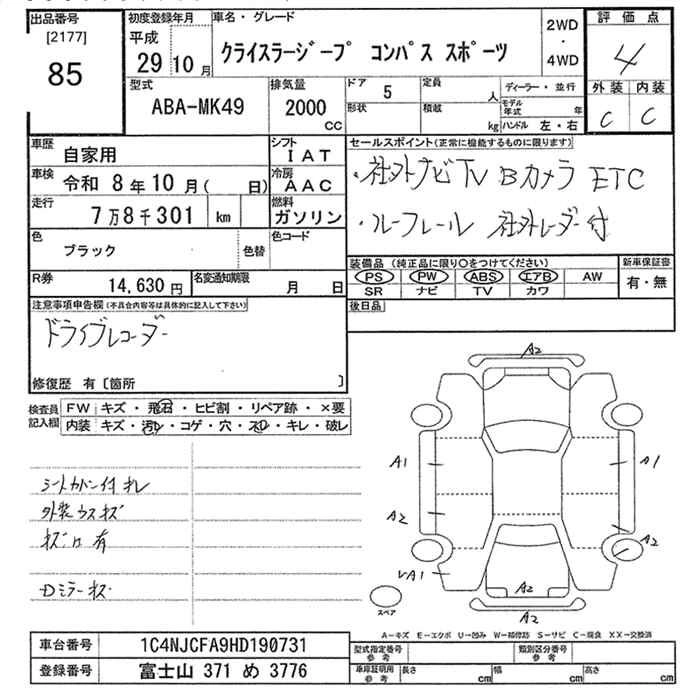 出品番号 初度登録年月 車名・グレード 2WD ・ 4WD 評価点
[2177]
85
平成 29 10 月 クライスラージープ コンパス スポーツ 4
型式 排気量 ドア 5 定員 人 ディーラー・並行 外装 内装
ABA-MK49 2000 CC 形状 積載 kg モデル年式 年 C C
ハンドル 左・右
車歴 自家用 シフト IAT セールスポイント(正常に機能するものに限ります)
車検 令和 8年10月( 日) 冷房 AAC ・社外ナビTV Bカメラ ETC
走行 7万8千301 km 燃料 ガソリン ・ルーフレール 社外レーダー付
色 ブラック 色替 色コード
装備品(純正品に限り○をつけてください) 新車保証書
R券 14,630円 名変通知期限 月 日 PS PW ABS エアB AW 有・無
SR ナビ TV カワ
注意事項申告欄(不具合内容等は具体的に記入して下さい) 後日品
ドライブレコーダー
修復歴 有〔箇所 〕
検査員記入欄 FW キズ・飛石・ヒビ割・リペア跡・×要
内装 キズ・汚レ・コゲ・穴・スレ・キレ・破レ
シートカバー付 オレ
外装 ウスキズ
キズ凹有
Dミラーキズ
A2
A1 A1
A2 A2
VA1 A2
スペア A2
A-キズ E-エクボ U-凹み W-補修跡 S-サビ C-腐食 XX-交換済
車台番号 1C4NJCFA9HD190731 型式指定番号 参考 類別区分番号 参考
登録番号 富士山 371 め 3776 車庫証明用 参考 長さ cm 幅 cm 高さ cm